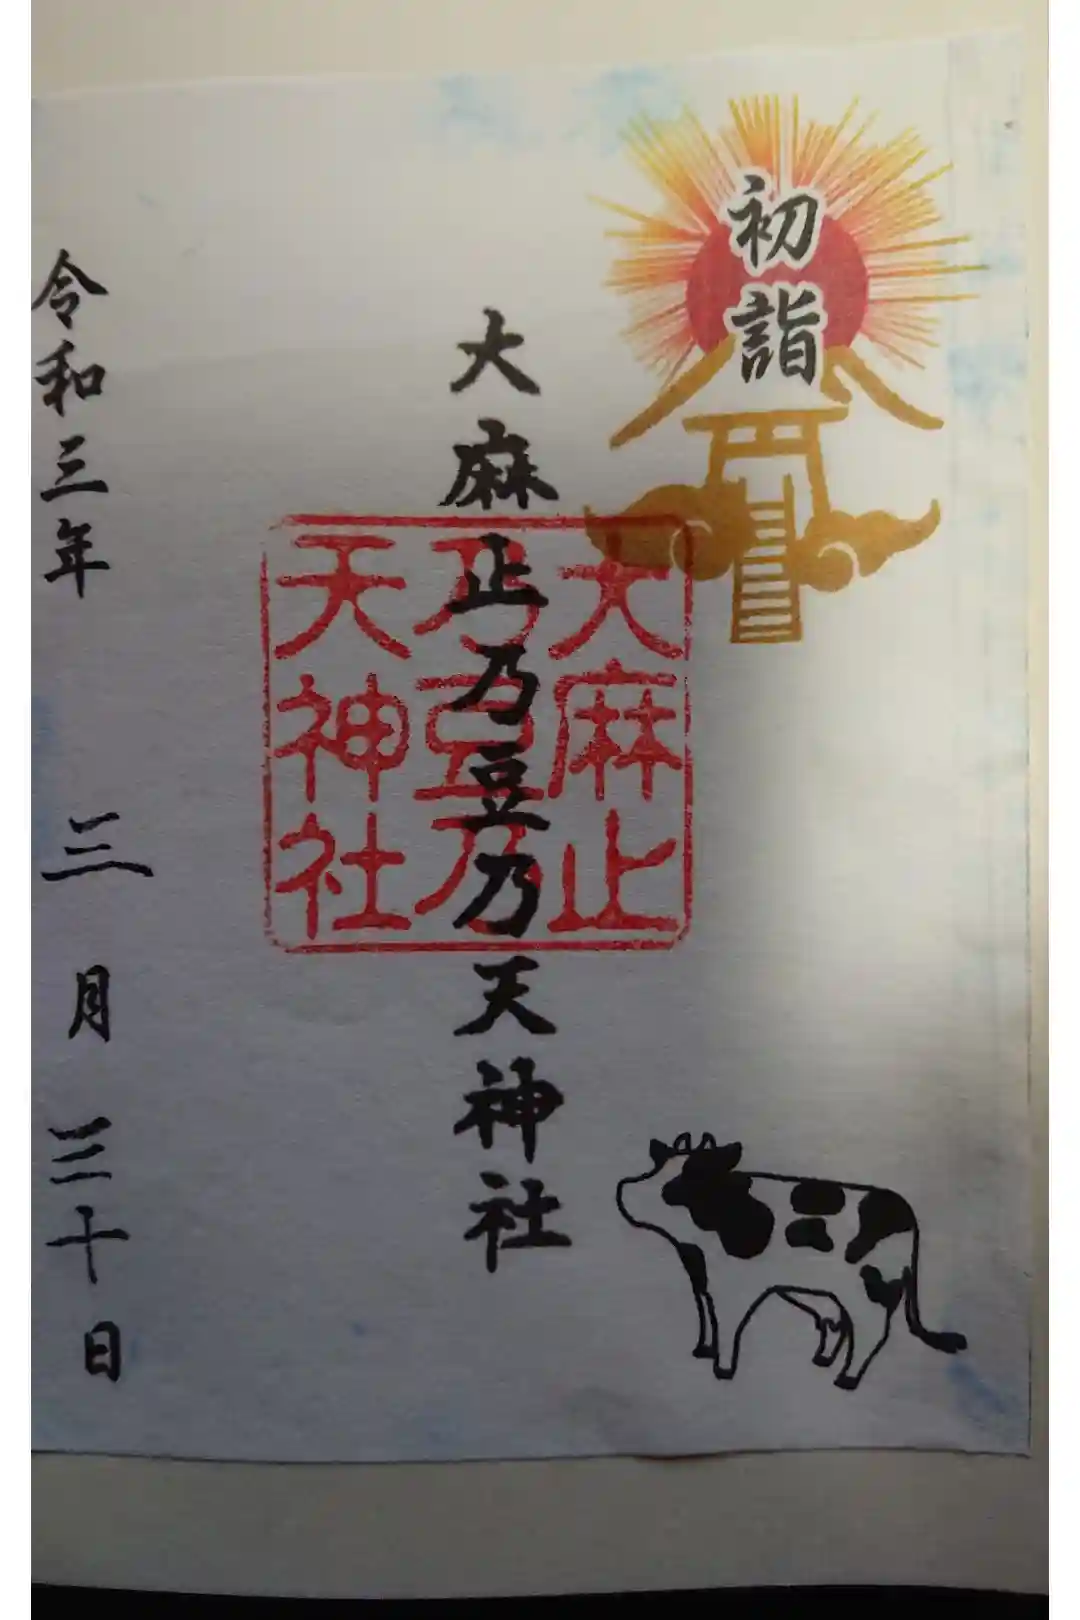 初詣
大麻止乃豆乃天神社
大麻止
乃豆乃
天神社
令和三年 三月三十日